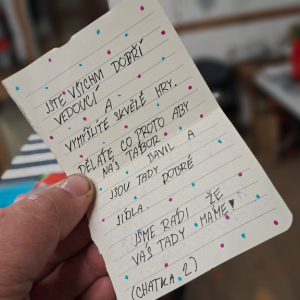 JSTE VŠICHNI DOBŘÍ
VEDOUCÍ A
VYMÝŠLÍTE SKVĚLÉ HRY.
DĚLÁTE CO PROTO ABY
NÁS TÁBOR BAVIL A
JSOU TADY DOBRÉ
JÍDLA.
JSME RÁDI ŽE
VÁS TADY MÁME♥
(CHATKA 2)